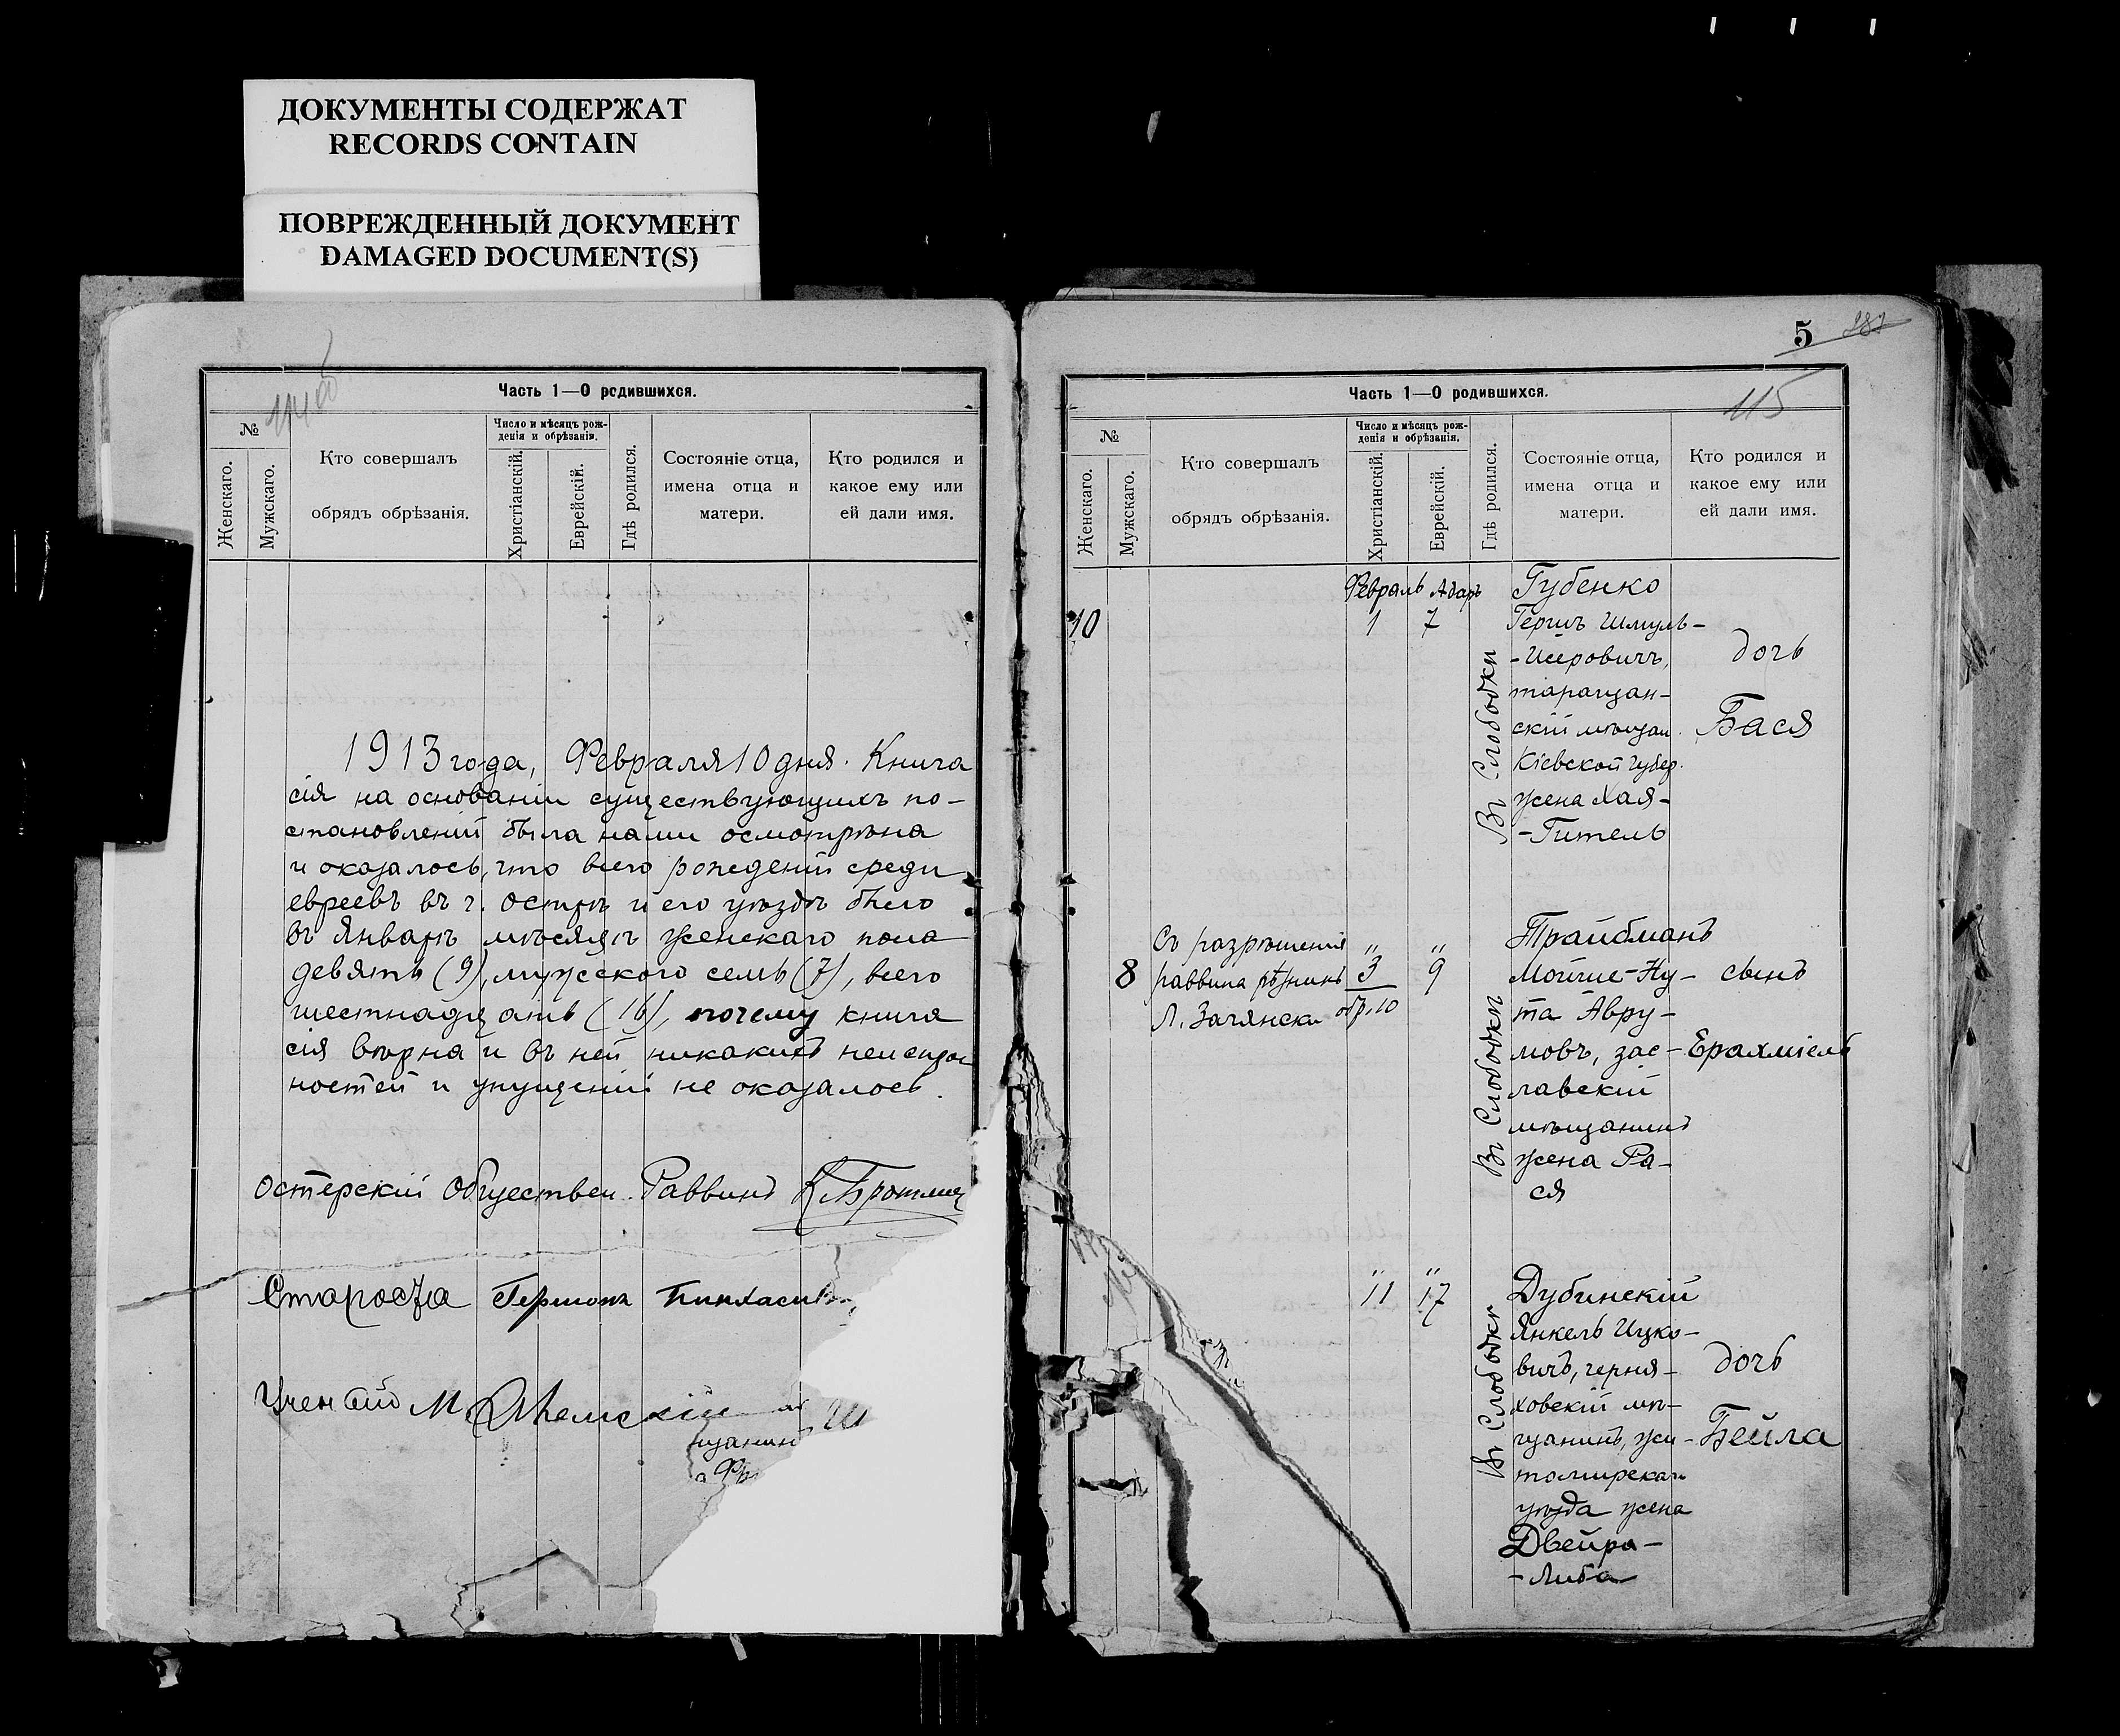 ДОКУМЕНТЫ СОДЕРЖАТ
RECORDS CONTAIN
ПОВРЕЖДЕННЫЙ ДОКУМЕНТ
DAMAGED DOCUMENT(S)
Часть 1—О родившихся.
№
Женскаго.
Мужскаго.
Кто совершалъ
обрядъ обрѣзанія.
Число и мѣсяцъ рож-
денія и обрѣзанія.
Христіанскій.
Еврейскій.
Гдѣ родился.
Состояніе отца,
имена отца и
матери.
Кто родился и
какое ему или
ей дали имя.
1913 года, Февраля 10 дня. Книга
сія на основаніи существующихъ по-
становленій была нами осмотрѣна
и оказалось, что всего рожденій среди
евреевъ въ г. Острѣ и его уѣздѣ было
въ Январѣ мѣсяцѣ женскаго пола
девять (9), мужского семь (7), всего
шестнадцать (16), почему книга
сія вѣрна и въ ней никакихъ
ностей и упущеній не оказалось.
Остерскій Обществен. Раввинъ
Староста Гершонъ
Ученый М.
щанинъ
5
115
Часть 1—О родившихся.
№
Женскаго.
Мужскаго.
Кто совершалъ
обрядъ обрѣзанія.
Число и мѣсяцъ рож-
денія и обрѣзанія.
Христіанскій.
Еврейскій.
Гдѣ родился.
Состояніе отца,
имена отца и
матери.
Кто родился и
какое ему или
ей дали имя.
Февраль Адаръ
10
1
7
Въ Слободкѣ
Губенко
Гершъ Шмуль-
-Исеровичъ,
таращан-
скій мѣщан.
Кіевской губер.
жена Хая-
-Гитель
дочь
Бася
8
Съ разрѣшенія
раввина рѣзникъ
Л. Зачянски
" 3
обр. 10
" 9
Въ Слободкѣ
Трайбманъ
Мойше-Ну-
та Авру-
мовъ, зас-
лавскій
мѣщанинъ
жена Ра-
ся
сынъ
Ерахміель
" 11
" 17
Въ Слободкѣ
Дубинскій
Янкель Ицко-
вичъ, черня-
ховскій мѣ-
щанинъ, жи-
томирскаго
уѣзда жена
Двейра-
-Либа
дочь
Бейла